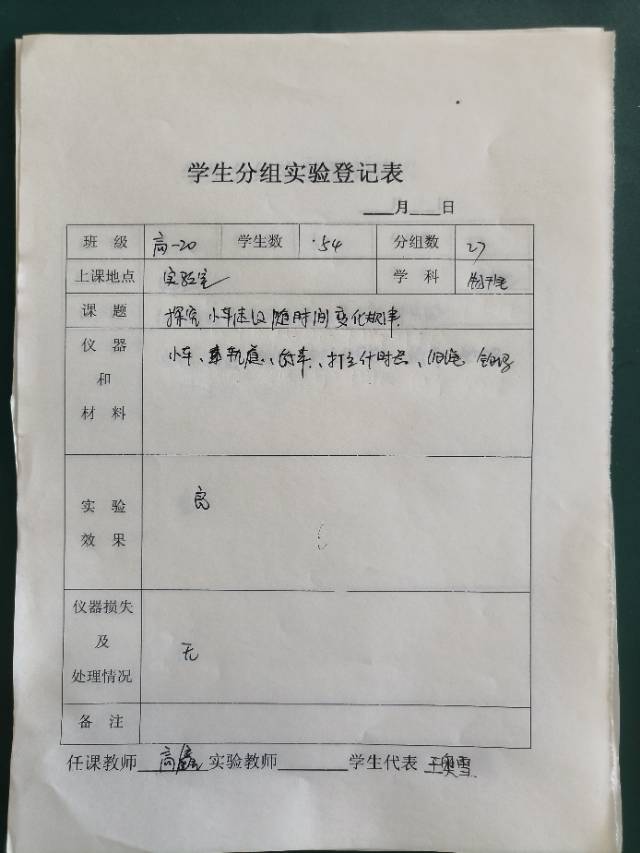 学生分组实验登记表
___月___日
班 级 高一20 学生数 54 分组数 27
上课地点 实验室 学 科 物理
课 题 探究小车速度随时间变化规律
仪 器 和 材 料 小车、导轨、打点计时器、钩码
实 验 效 果 良
仪器损失 及 处理情况 无
备 注
任课教师 高 实验教师______学生代表 王奥雪